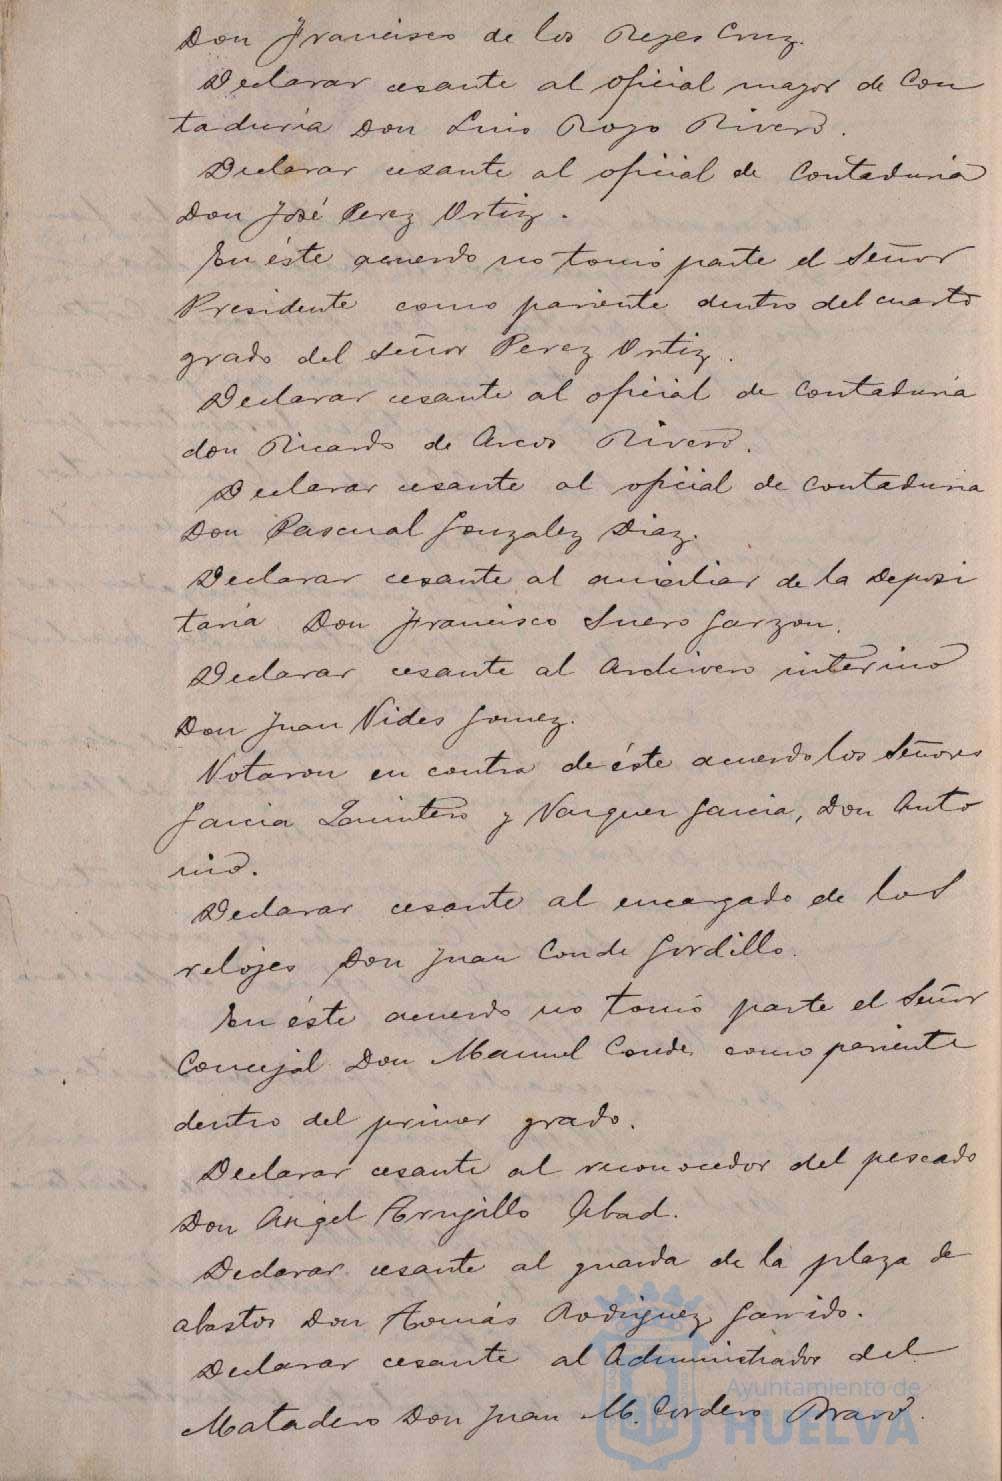 Don Francisco de los Reyes Cruz.
Declarar cesante al oficial mayor de Con
taduria Don Luis Rojo Rivero.
Declarar cesante al oficial de Contaduria
Don José Perez Ortiz.
En éste acuerdo no tomó parte el Señor
Presidente como pariente dentro del cuarto
grado del Señor Perez Ortiz.
Declarar cesante al oficial de Contaduria
don Ricardo de Arcos Rivero.
Declarar cesante al oficial de Contaduria
Don Pascual Gonzalez Diaz.
Declarar cesante al auxiliar de la Deposi
taria Don Francisco Suero Garzon.
Declarar cesante al Archivero interino
Don Juan Vides Gomez.
Votaron en contra de éste acuerdo los Señores
Garcia Quintero y Vazquez Garcia, Don Anto
nio.
Declarar cesante al encargado de los
relojes Don Juan Conde Gordillo.
En éste acuerdo no tomó parte el Señor
Concejal Don Manuel Conde, como pariente
dentro del primer grado.
Declarar cesante al reconocedor del pescado
Don Angel Trujillo Abad.
Declarar cesante al guarda de la plaza de
abastos Don Tomás Rodriguez Garrido.
Declarar cesante al Administrador del
Matadero Don Juan M. Cordero Bravo.
Ayuntamiento de
HUELVA